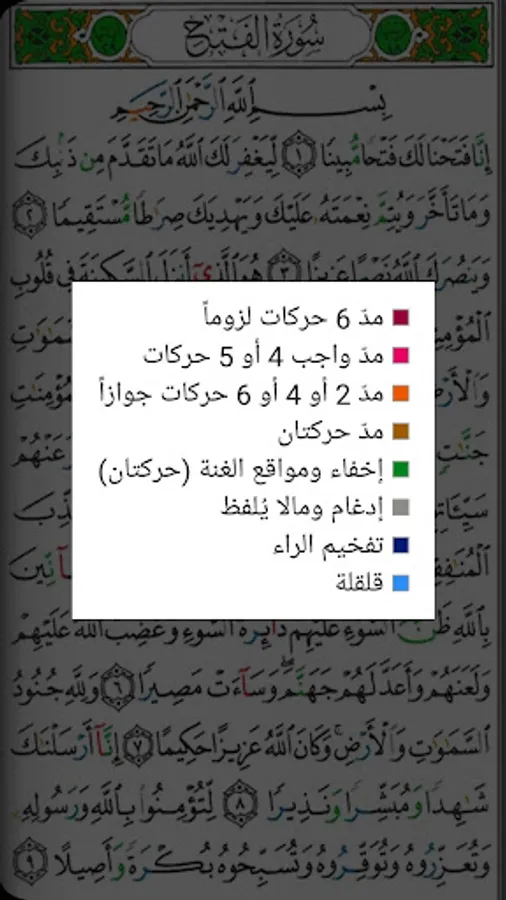 سُورَةُ الْفَتْحِ
بِسْمِ اللَّهِ الرَّحْمَٰنِ الرَّحِيمِ
إِنَّا فَتَحْنَا لَكَ فَتْحًا مُّبِينًا ١ لِّيَغْفِرَ لَكَ اللَّهُ مَا تَقَدَّمَ مِن ذَنۢبِكَ
وَمَا تَأَخَّرَ وَيُتِمَّ نِعْمَتَهُۥ عَلَيْكَ وَيَهْدِيَكَ صِرَٰطًا مُّسْتَقِيمًا ٢
وَيَنصُرَكَ اللَّهُ نَصْرًا عَزِيزًا ٣ هُوَ الَّذِىٓ أَنزَلَ السَّكِينَةَ فِى قُلُوبِ
مدّ 6 حركات لزوماً
مدّ واجب 4 أو 5 حركات
مدّ 2 أو 4 أو 6 حركات جوازاً
مدّ حركتان
إخفاء ومواقع الغنة (حركتان)
إدغام ومالا يُلفظ
تفخيم الراء
قلقلة
بِاللَّهِ ظَنَّ السَّوْءِ عَلَيْهِمْ دَآئِرَةُ السَّوْءِ وَغَضِبَ اللَّهُ عَلَيْهِمْ
وَلَعَنَهُمْ وَأَعَدَّ لَهُمْ جَهَنَّمَ ۖ وَسَآءَتْ مَصِيرًا ٦ وَلِلَّهِ جُنُودُ
السَّمَٰوَٰتِ وَالْأَرْضِ ۚ وَكَانَ اللَّهُ عَزِيزًا حَكِيمًا ٧ إِنَّآ أَرْسَلْنَٰكَ
شَٰهِدًا وَمُبَشِّرًا وَنَذِيرًا ٨ لِّتُؤْمِنُوا۟ بِاللَّهِ وَرَسُولِهِۦ
وَتُعَزِّرُوهُ وَتُوَقِّرُوهُ وَتُسَبِّحُوهُ بُكْرَةً وَأَصِيلًا ٩